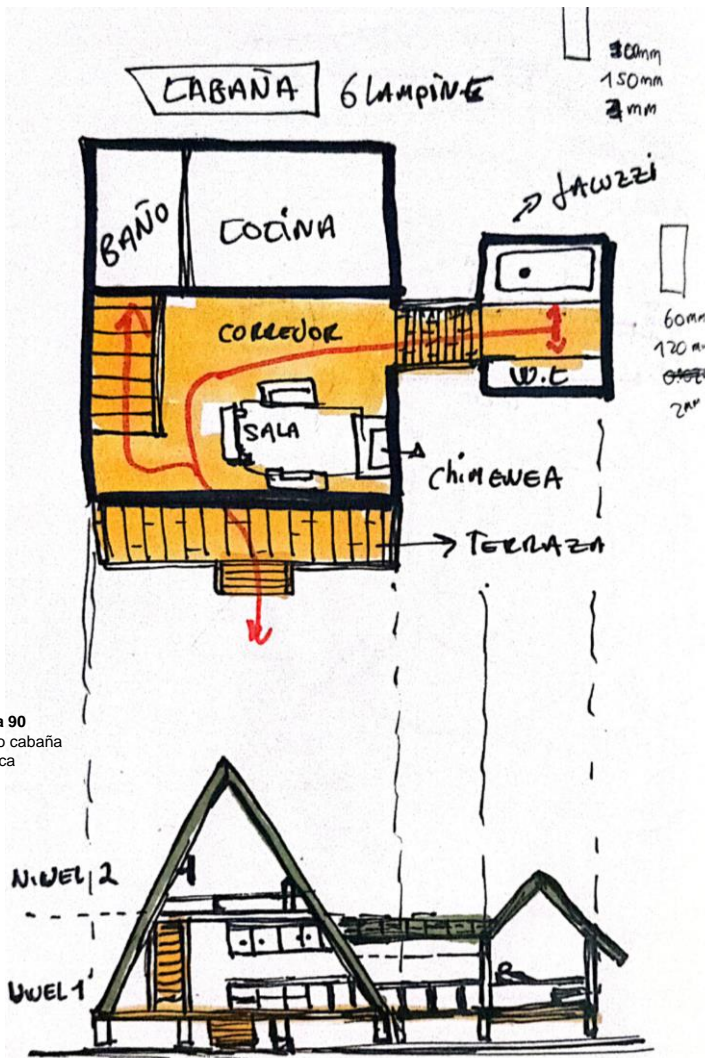 CABAÑA GLAMPING
300mm
150mm
3mm
JACUZZI
BAÑO
COCINA
CORREDOR
60mm
120 m
W.C
2mm
SALA
CHIMENEA
TERRAZA
a 90
o cabaña
ca
NIVEL 2
NIVEL 1